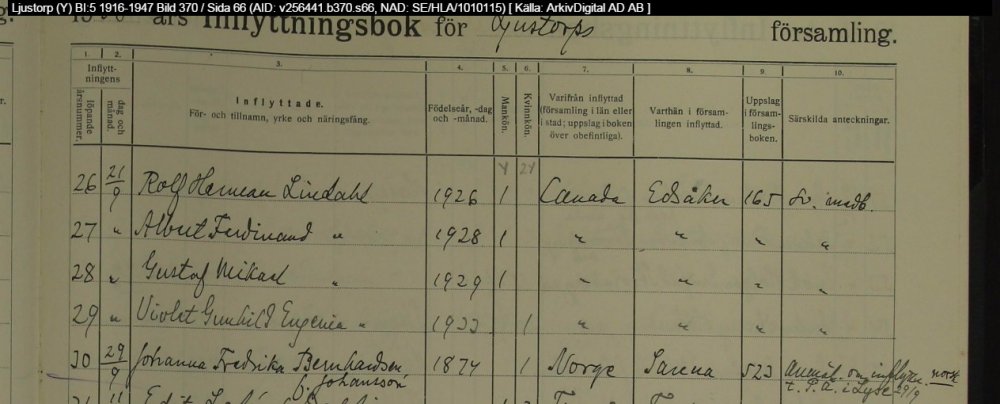 Ljustorp (Y) BI:5 1916-1947 Bild 370 / Sida 66 (AID: v256441.b370.s66, NAD: SE/HLA/1010115) [ Källa: ArkivDigital AD AB ]
års Inflyttningsbok för Ljustorps församling.
1. 2. 3. 4. 5. 6. 7. 8. 9. 10.
Inflyttningens
löpande årsnummer.
dag och månad.
Inflyttade.
För- och tillnamn, yrke och näringsfång.
Födelseår, -dag och -månad.
Mankön.
Kvinnkön.
Varifrån inflyttad (församling i län eller i stad; uppslag i boken över obefintliga).
Varthän i församlingen inflyttad.
Uppslag i församlingsboken.
Särskilda anteckningar.
4 24
26 21/9 Rolf Herman Lindahl 1926 1 Canada Edsåker 165 Sv. medb.
27 " Albert Ferdinand " 1928 1 " " " "
28 " Gustaf Mikael " 1929 1 " " " "
29 " Violet Gunhild Eugenia " 1933 1 " " " "
30 29/9 Johanna Fredrika Bernhardsen 1874 1 Norge 523 Anmäl. om inflyttn. norsk
f. Johansson t. P. Ä. i Lyse 29/9